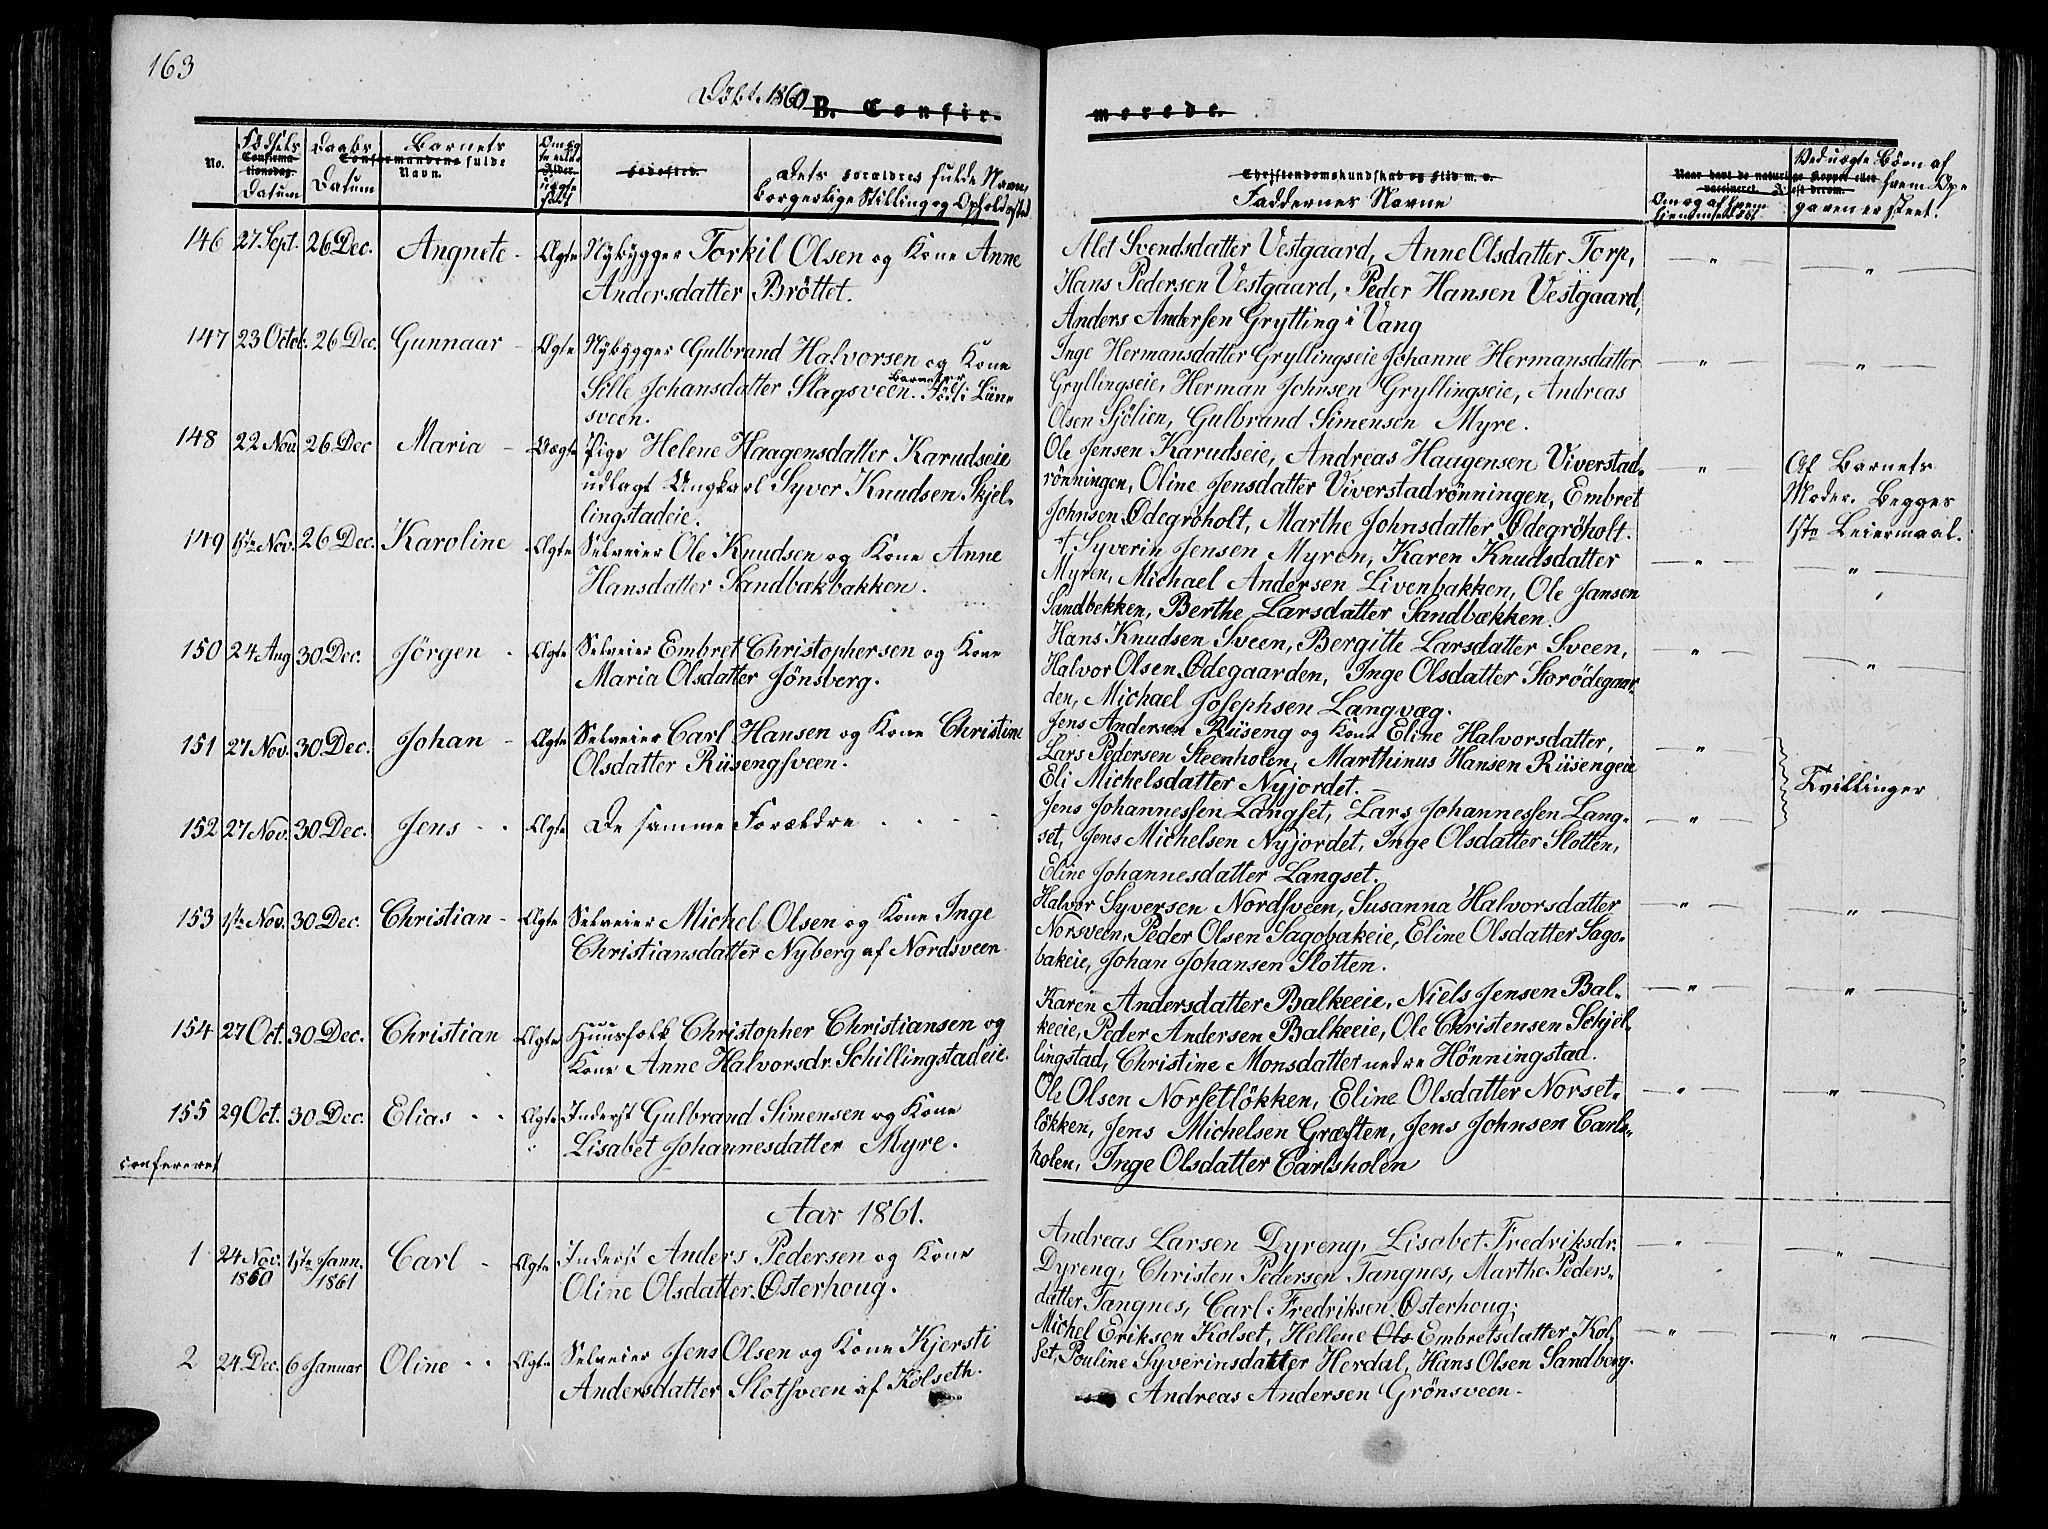 163
Döbt. 1860
B. Confir-
merede.
No.
Födsels
Confirma-
tionsdag.
Datum
Daabs
Datum
Barnets
Confirmandens fulde
Navn.
Om æg
te eller
Alder.
uægte
född
Födested.
Dets Forældres fulde Navn,
borgerlige Stilling og Opholdssted
Christendomskundskab og Flid m. v.
Faddernes Navne
Naar havt de naturlige Kopper eller
vaccineret. Attest derom.
Om og af hvem
hjemmedöbt
Ved uægte Börn af
hvem Op-
gaven er skeet.
146 27 Sept. 26 Dec. Angnete - Ægte Nybygger Torkil Olsen og Kone Anne
Andersdatter Bröttet.
Alet Svendsdatter Vestgaard, Anne Olsdatter Torp,
Hans Pedersen Vestgaard, Peder Hansen Vestgaard,
Anders Andersen Grytting i Vang
147 23 Octob. 26 Dec. Gunnaar - Ægte Nybygger Gulbrand Halvorsen og Kone
Sille Johansdatter Slagsveen. Barnet er Född i Lüne
sveen.
Inge Hermansdatter Gryllingseie Johanne Hermansdatter
Gryllingseie, Herman Johnsen Gryllingseie, Andreas
Olsen Sjölien, Gulbrand Simensen Myre.
148 22 Nov. 26 Dec Maria - Uægte Pige Helene Haagensdatter Karudseie
udlagt Ungkarl Syver Knudsen Skjel-
lingstadeie.
Ole Jensen Karudseie, Andreas Haagensen Viverstad-
rönningen, Oline Jensdatter Viverstadrönningen, Embret
Johnsen Ödegröholt, Marthe Johnsdatter Ödegröholt.
Af Barnets
Moder. Begges
1ste Leiermaal.
149 1ste Nov. 26 Dec. Karoline - Ægte Selveier Ole Knudsen og Kone Anne
Hansdatter Sandbakbakken.
Syverin Jensen Myren, Karen Knudsdatter
Myren, Michael Andersen Livenbakken, Ole Jansen
Sandbekken, Berthe Larsdatter Sandbækken.
150 24 Aug 30 Dec. Jörgen - Ægte Selveier Embret Christophersen og Kone
Maria Olsdatter Jönsberg.
Hans Knudsen Sveen, Bergitte Larsdatter Sveen,
Halvor Olsen Ödegaarden, Inge Olsdatter Storödegaar-
den, Michael Josephsen Langvæg.
151 27 Nov. 30 Dec. Johan - Ægte Selveier Carl Hansen og Kone Christine
Olsdatter Rüsengsveen.
Jens Andersen Rüseng og Kone Eline Halvorsdatter,
Lars Pedersen Steenholen, Marthinus Hansen Rüsengeie
Eli Michelsdatter Nyjordet. -
Tvillinger
152 27 Nov. 30 Dec. Jens - - Ægte De samme Forældre - - - -
Jens Johannessen Langset, Lars Johannessen Lang-
set, Jens Michelsen Nyjordet, Inge Olsdatter Slotten,
Eline Johannesdatter Langset.
153 1ste Nov. 30 Dec. Christian - Ægte Selveier Michel Olsen og Kone Inge
Christiansdatter Nyberg af Nordsveen
Halvor Syversen Nordsveen, Susanna Halvorsdatter
Norsveen, Peder Olsen Sagobakeie, Eline Olsdatter Sago-
bakeie, Johan Johansen Slotten.
154 27 Oct. 30 Dec. Christian Ægte Huusfolk Christopher Christiansen og
Kone Anne Halvorsdr. Schillingstadeie.
Karen Andersdatter Balkeeie, Niels Jensen Bal-
keeie, Peder Andersen Balkeeie, Ole Christensen Schjel-
lingstad, Christine Monsdatter nedre Hönningstad.
155 29 Oct. 30 Dec. Elias - - Ægte Inderst Gulbrand Simensen og Kone
Lisabet Johannesdatter Myre.
Ole Olsen Norsetlökken, Eline Olsdatter Norset-
lökken, Jens Michelsen Græften, Jens Johnsen Carls-
holen, Inge Olsdatter Carlsholen
confereret
Aar 1861.
1 24 Nov. 1860 1ste Jann. 1861 Carl - Ægte Inderst Anders Pedersen og Kone
Oline Olsdatter Österhoug.
Andreas Larsen Dyreng, Lisabet Fredriksdr.
Dyreng, Christen Pedersen Tangnes, Marthe Peders-
datter Tangnes, Carl Fredriksen Österhoug;
2 24 Dec. 6 Januar Oline - - Ægte Selveier Jens Olsen og Kone Kjersti
Andersdatter Slotsveen af Kolseth.
Michel Eriksen Kolset, Hellene Ols Embretsdatter Kol-
set, Pouline Syverinsdatter Herdal, Hans Olsen Sandberg.
Andreas Andersen Grönsveen.